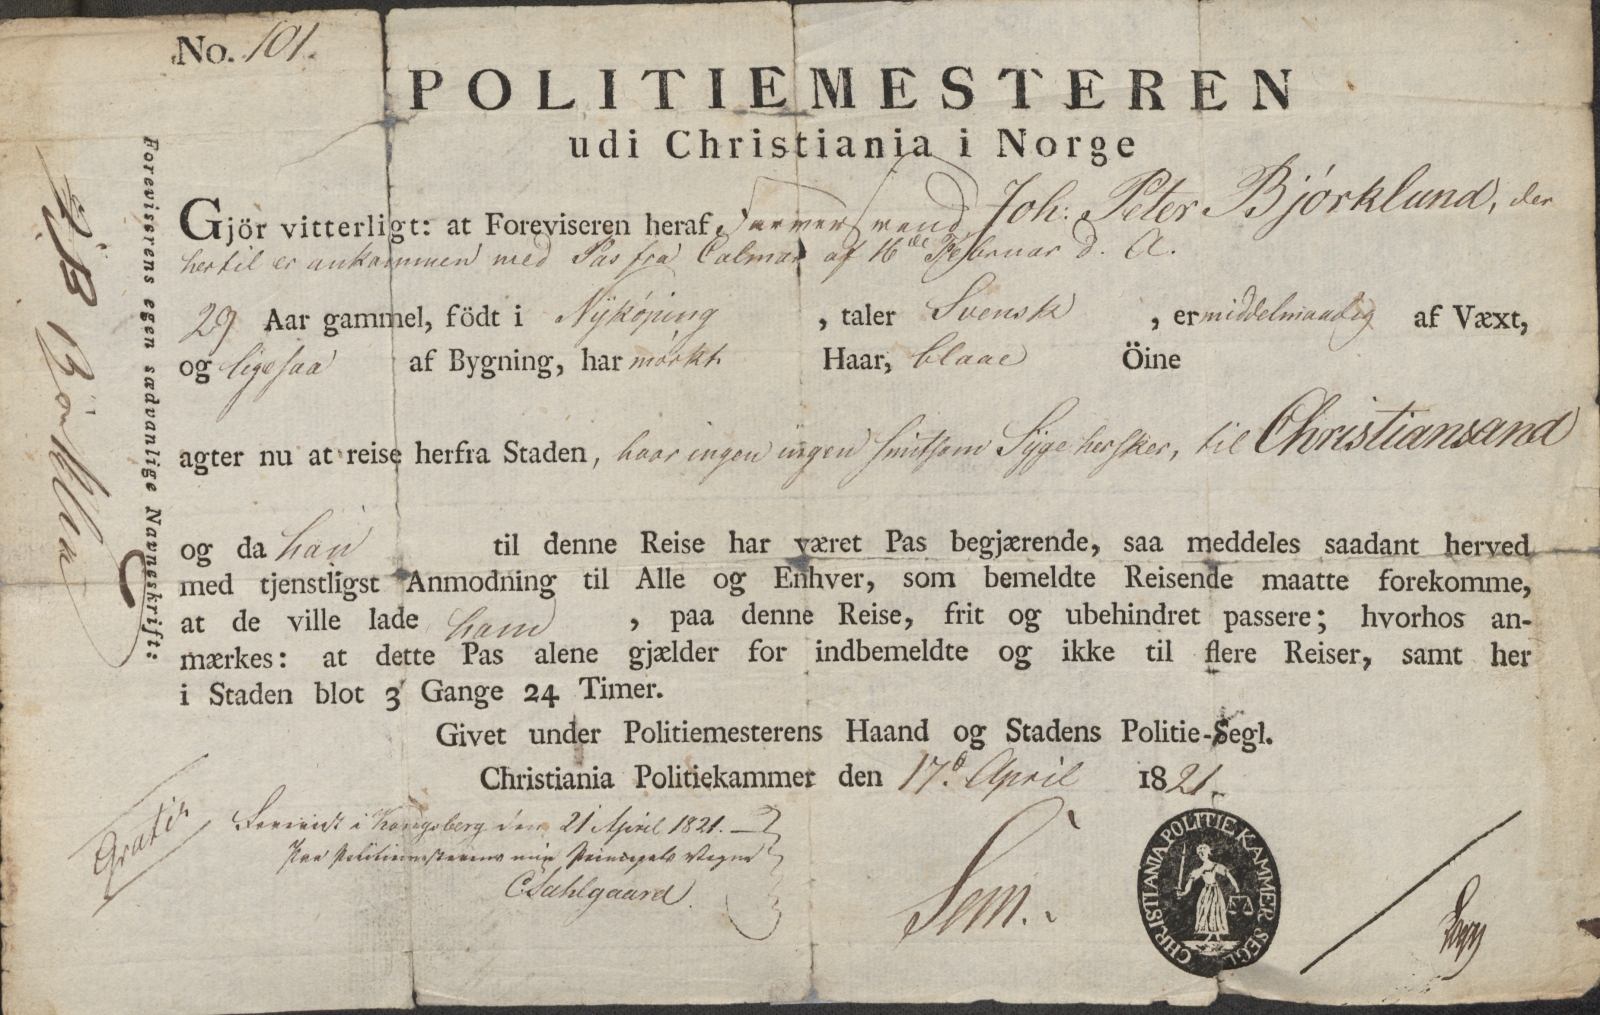 No. 101.
POLITIEMESTEREN
udi Christiania i Norge
Gjör vitterligt: at Foreviseren heraf, Farversvend Joh: Peter Bjórklund, der
hertil er ankommen med Pas fra Calmar af 16de Februar d. A.
29 Aar gammel, födt i Nÿkóping , taler Svensk , er middelmaadig af Væxt,
og ligesaa af Bygning, har mórkt Haar, blaae Öine
agter nu at reise herfra Staden, hvor ingen ingen smitsom Sÿge hersker, til Christiansand
og da han til denne Reise har været Pas begjærende, saa meddeles saadant herved
med tjenstligst Anmodning til Alle og Enhver, som bemeldte Reisende maatte forekomme,
at de ville lade ham , paa denne Reise, frit og ubehindret passere; hvorhos an-
mærkes: at dette Pas alene gjælder for indbemeldte og ikke til flere Reiser, samt her
i Staden blot 3 Gange 24 Timer.
Givet under Politiemesterens Haand og Stadens Politie-Segl.
Christiania Politiekammer den 17d April 1821.
Gratis
Foreviist i Kongsberg den 21 April 1821.
Paa Politiemesterens min Principals Vegne
Sem.
CHRISTIANIA POLITIE KAMMER SEGL
Foreviserens egen sædvanlige Navneskrift: